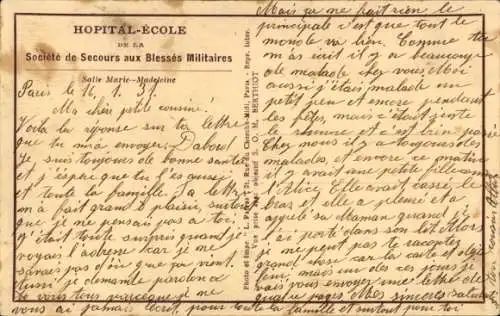 HOPITAL-ÉCOLE
DE LA
Société de Secours aux Blessés Militaires
Salle Marie-Madeleine
Paris le 16.1.31.
Ma chère petite cousine!
Voila la réponse sur ta lettre
que tu m'a envoyer. D'abord
Je suis toujours de bonne santé
et j'espère que tu l'es aussi
et toute la famille. Ta lettre
m'a fait grand plaisir, surtout
que je ne pensais pas a toi.
J'était toute surpris quand je
voyais l'adresse car je me
pas d'où que ça vient.
je demante pardon a
vous tous parceque je ne
pour toute la famille et surtout pour toi
Photo et Impr. L. 71, Rue du Cherche-Midi, Paris. - Repr. Inter.
Vue prise par objectif S. O. M. BERTHIOT
Mais ça ne fait rien le
principale c'est que tout le
monde va bien. Comme tu
m'as écrit il y a beaucoup
de malade chez vous. Moi
aussi j'étais malade un
petit peu et encore pendant
les fêtes, mais c'était juste
le rhume et c'est bien passé
Chez nous il y a toujours des
malades, et encore ce matin
il y avait une petite fille
l'Alice. Elle avait cassé le
bras et elle a pleurée et a
appelé sa Maman quand
porté dans son lit. Alors
je ne peut pas te raconter
grand chose car la carte et déjà
mais un des ces jours je
vais vous envoyer une lettre de
quatre pages. Mes sincères salutations